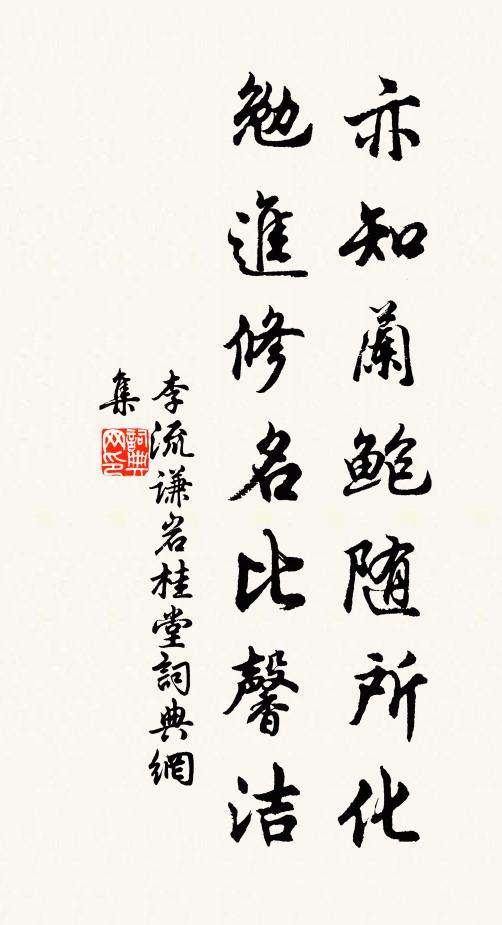 亦知蘭鮑随所化
勉進修名比馨洁
李流谦岩桂堂詞典網
集
詞典网印